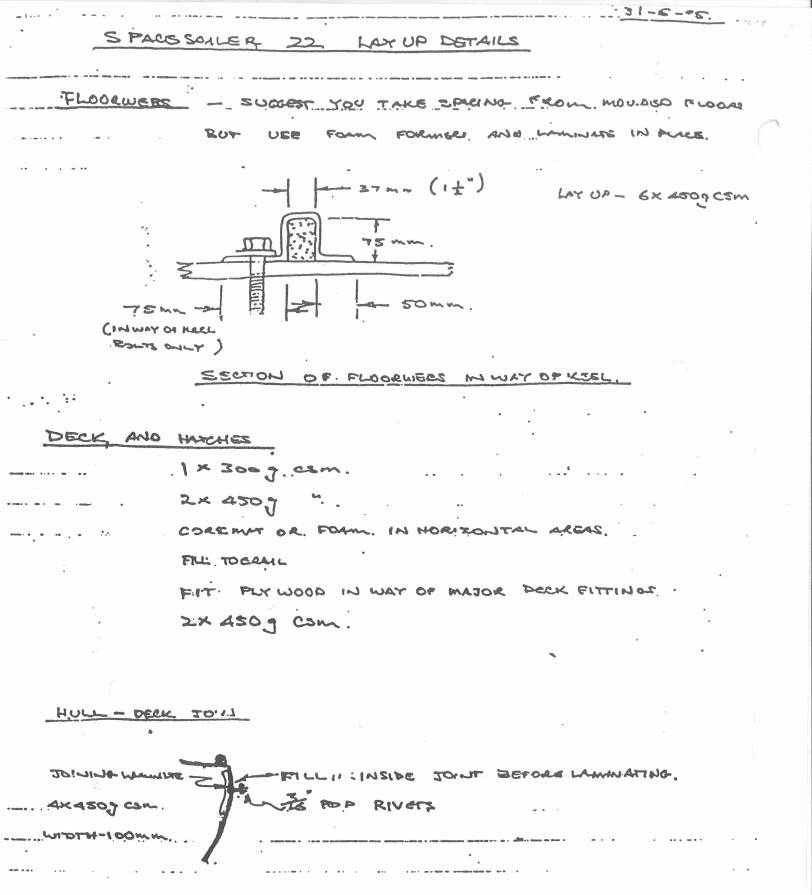 31-5-95.
SPACESAILER 22 LAY UP DETAILS
FLOORWEBS - SUGGEST YOU TAKE SPACING FROM MOULDED FLOORS
BUT USE FOAM FORMERS AND LAMINATE IN PLACE.
37mm (1½")
LAY UP - 6x 450g CSM
75mm.
75mm
50mm.
(IN WAY OF KEEL
BOLTS ONLY)
SECTION OF FLOORWEBS IN WAY OF KEEL.
DECK AND HATCHES
1 x 300g. csm.
2x 450g ".
COREMAT OR FOAM IN HORIZONTAL AREAS.
FILL TOERAIL
FIT PLYWOOD IN WAY OF MAJOR DECK FITTINGS.
2x 450g csm.
HULL - DECK JOIN
JOINING LAMINATE
FILL INSIDE JOINT BEFORE LAMINATING.
4x450g csm.
3/16" POP RIVETS
WIDTH-100mm.